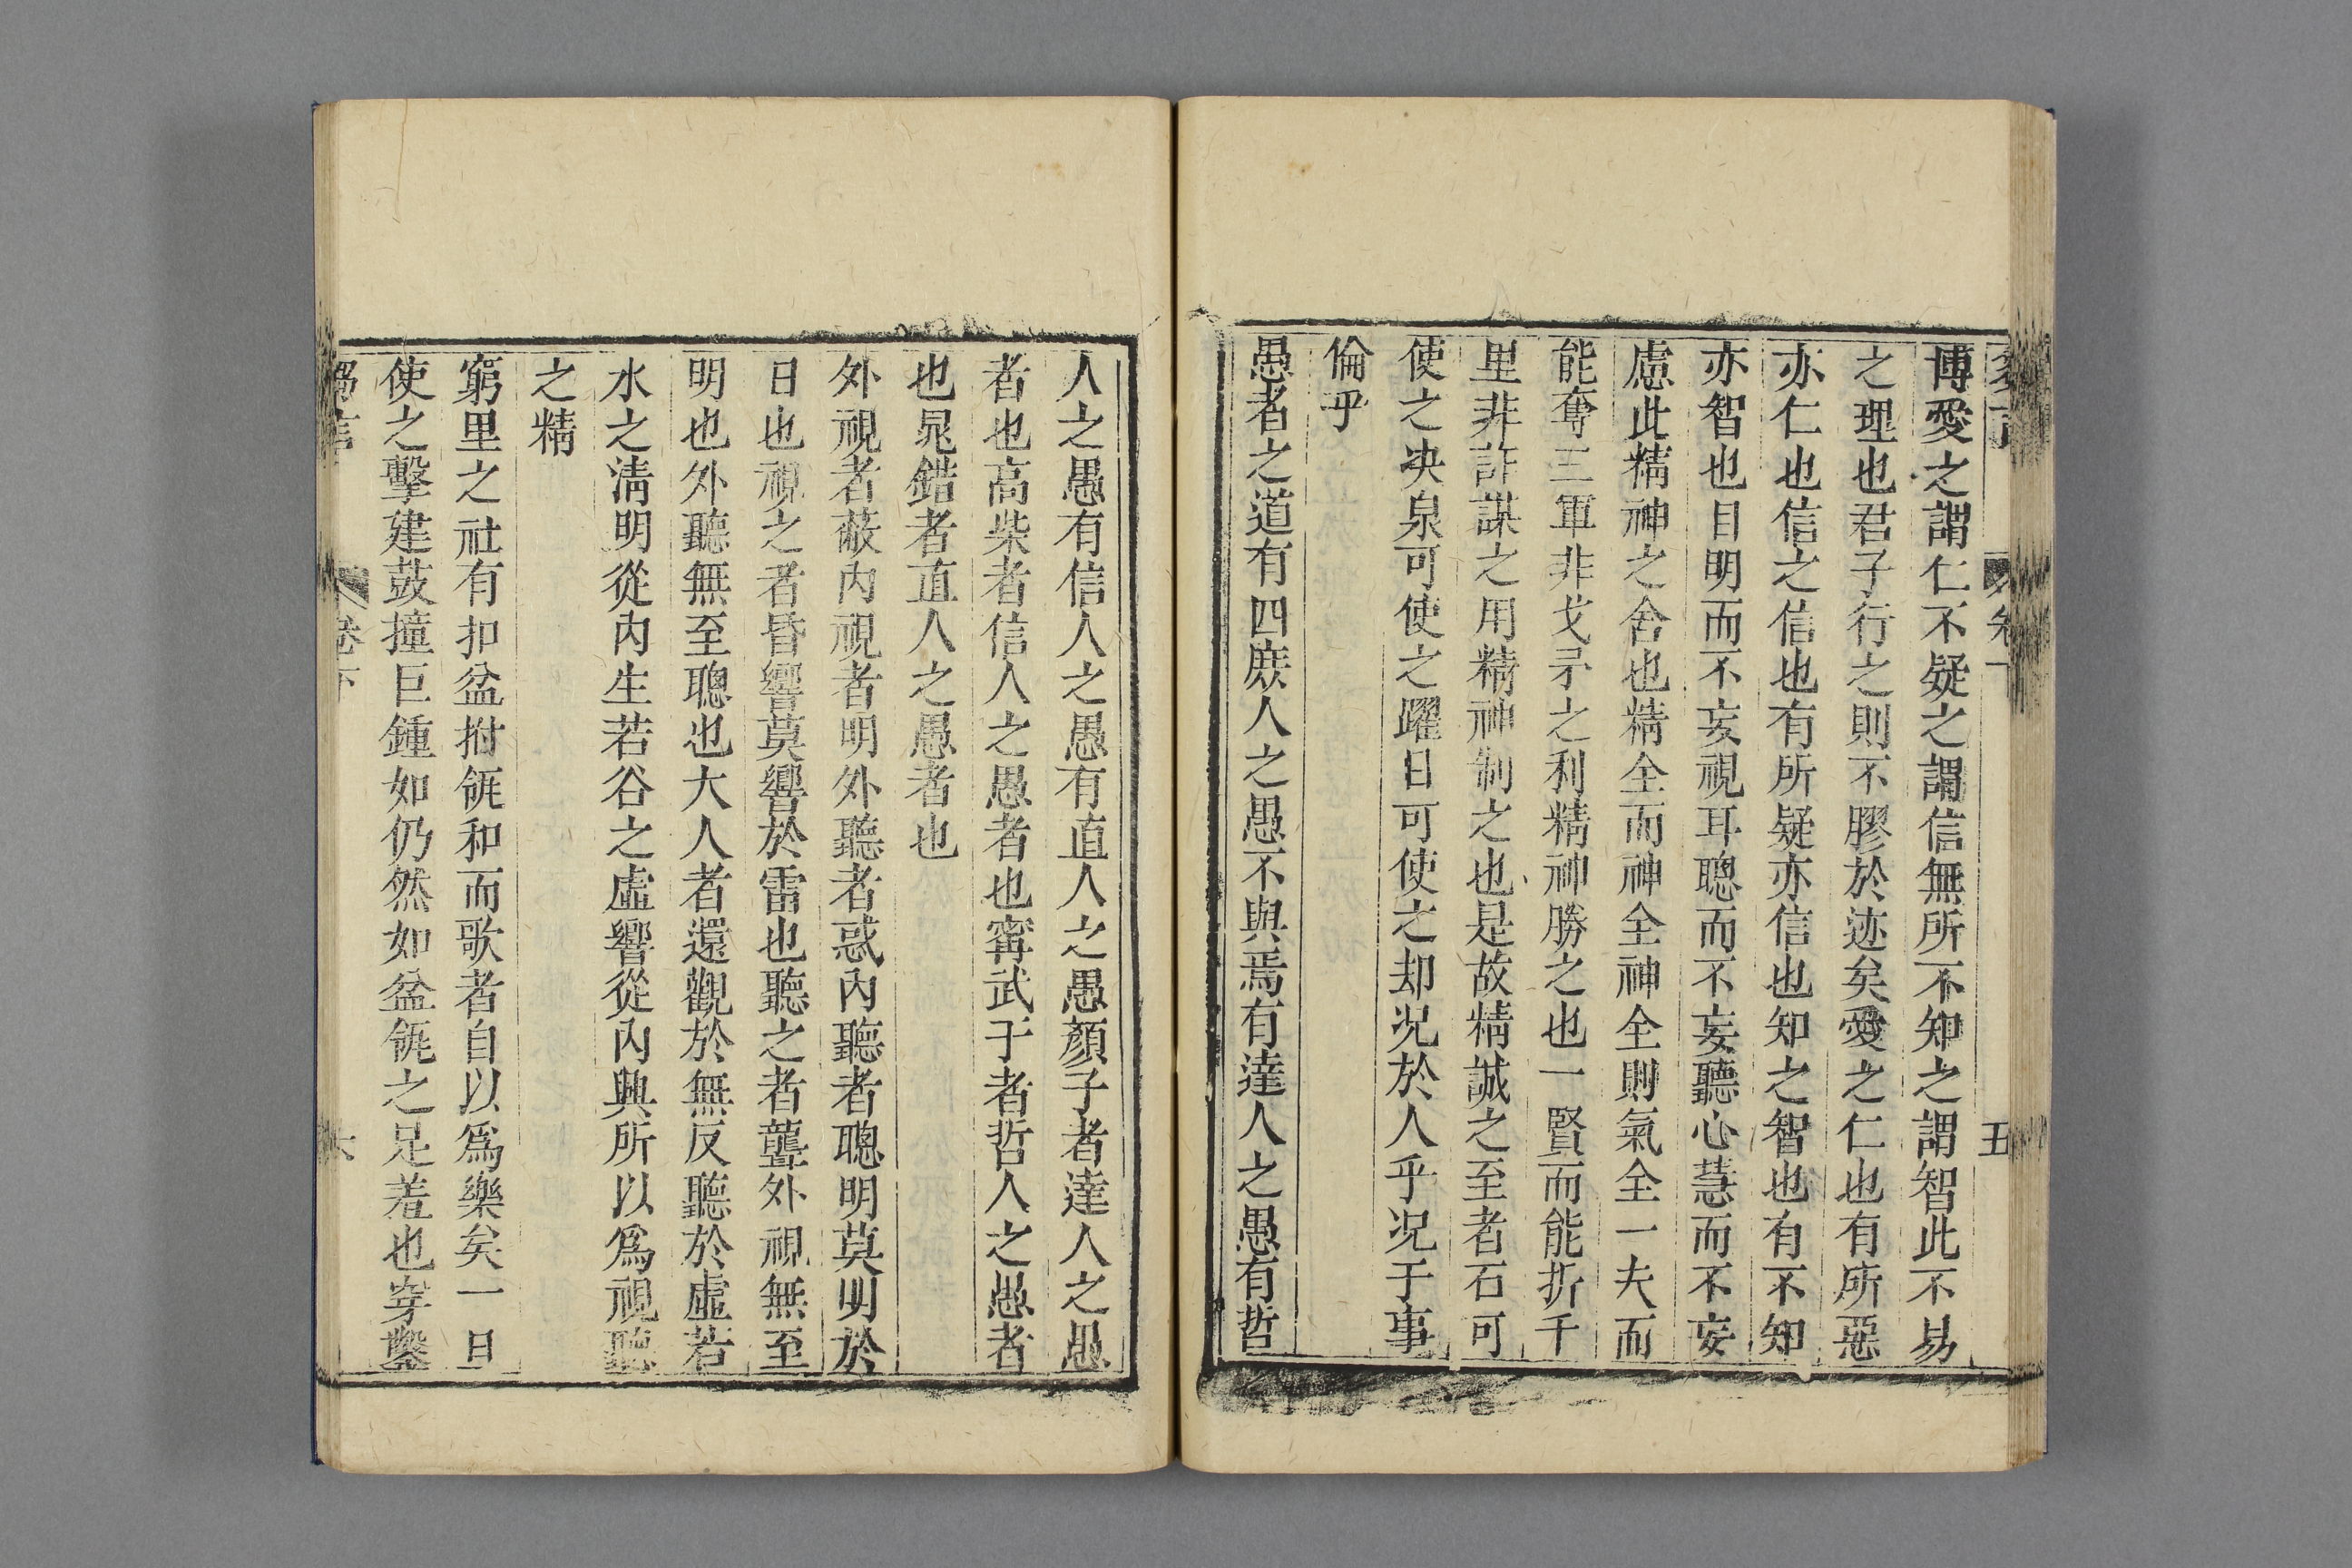 博愛之謂仁不疑之謂信無所不知之謂智此不易
之理也君子行之則不膠於迹矣愛之仁也有所惡
亦仁也信之信也有所疑亦信也知之智也有不知
亦智也目明而不妄視耳聰而不妄聽心慧而不妄
慮此精神之舍也精全而神全神全則氣全一夫而
能奪三軍非戈矛之利精神勝之也一賢而能折千
里非詐謀之用精神制之也是故精誠之至者石可
使之决泉可使之躍日可使之却况於人乎况于事
倫乎
愚者之道有四庶人之愚不與焉有達人之愚有哲
五
人之愚有信人之愚有直人之愚顏子者達人之愚
者也高柴者信人之愚者也寗武子者哲人之愚者
也晁錯者直人之愚者也
外視者蔽內視者明外聽者惑內聽者聰明莫明於
日也視之者昏響莫響於雷也聽之者聾外視無至
明也外聽無至聰也大人者還觀於無反聽於虛若
水之淸明從內生若谷之虛響從內興所以爲視聽
之精
窮里之社有扣盆拊瓴和而歌者自以爲樂矣一旦
使之擊建鼓撞巨鍾如仍然如盆瓴之足羞也穿鑿
卷下
六